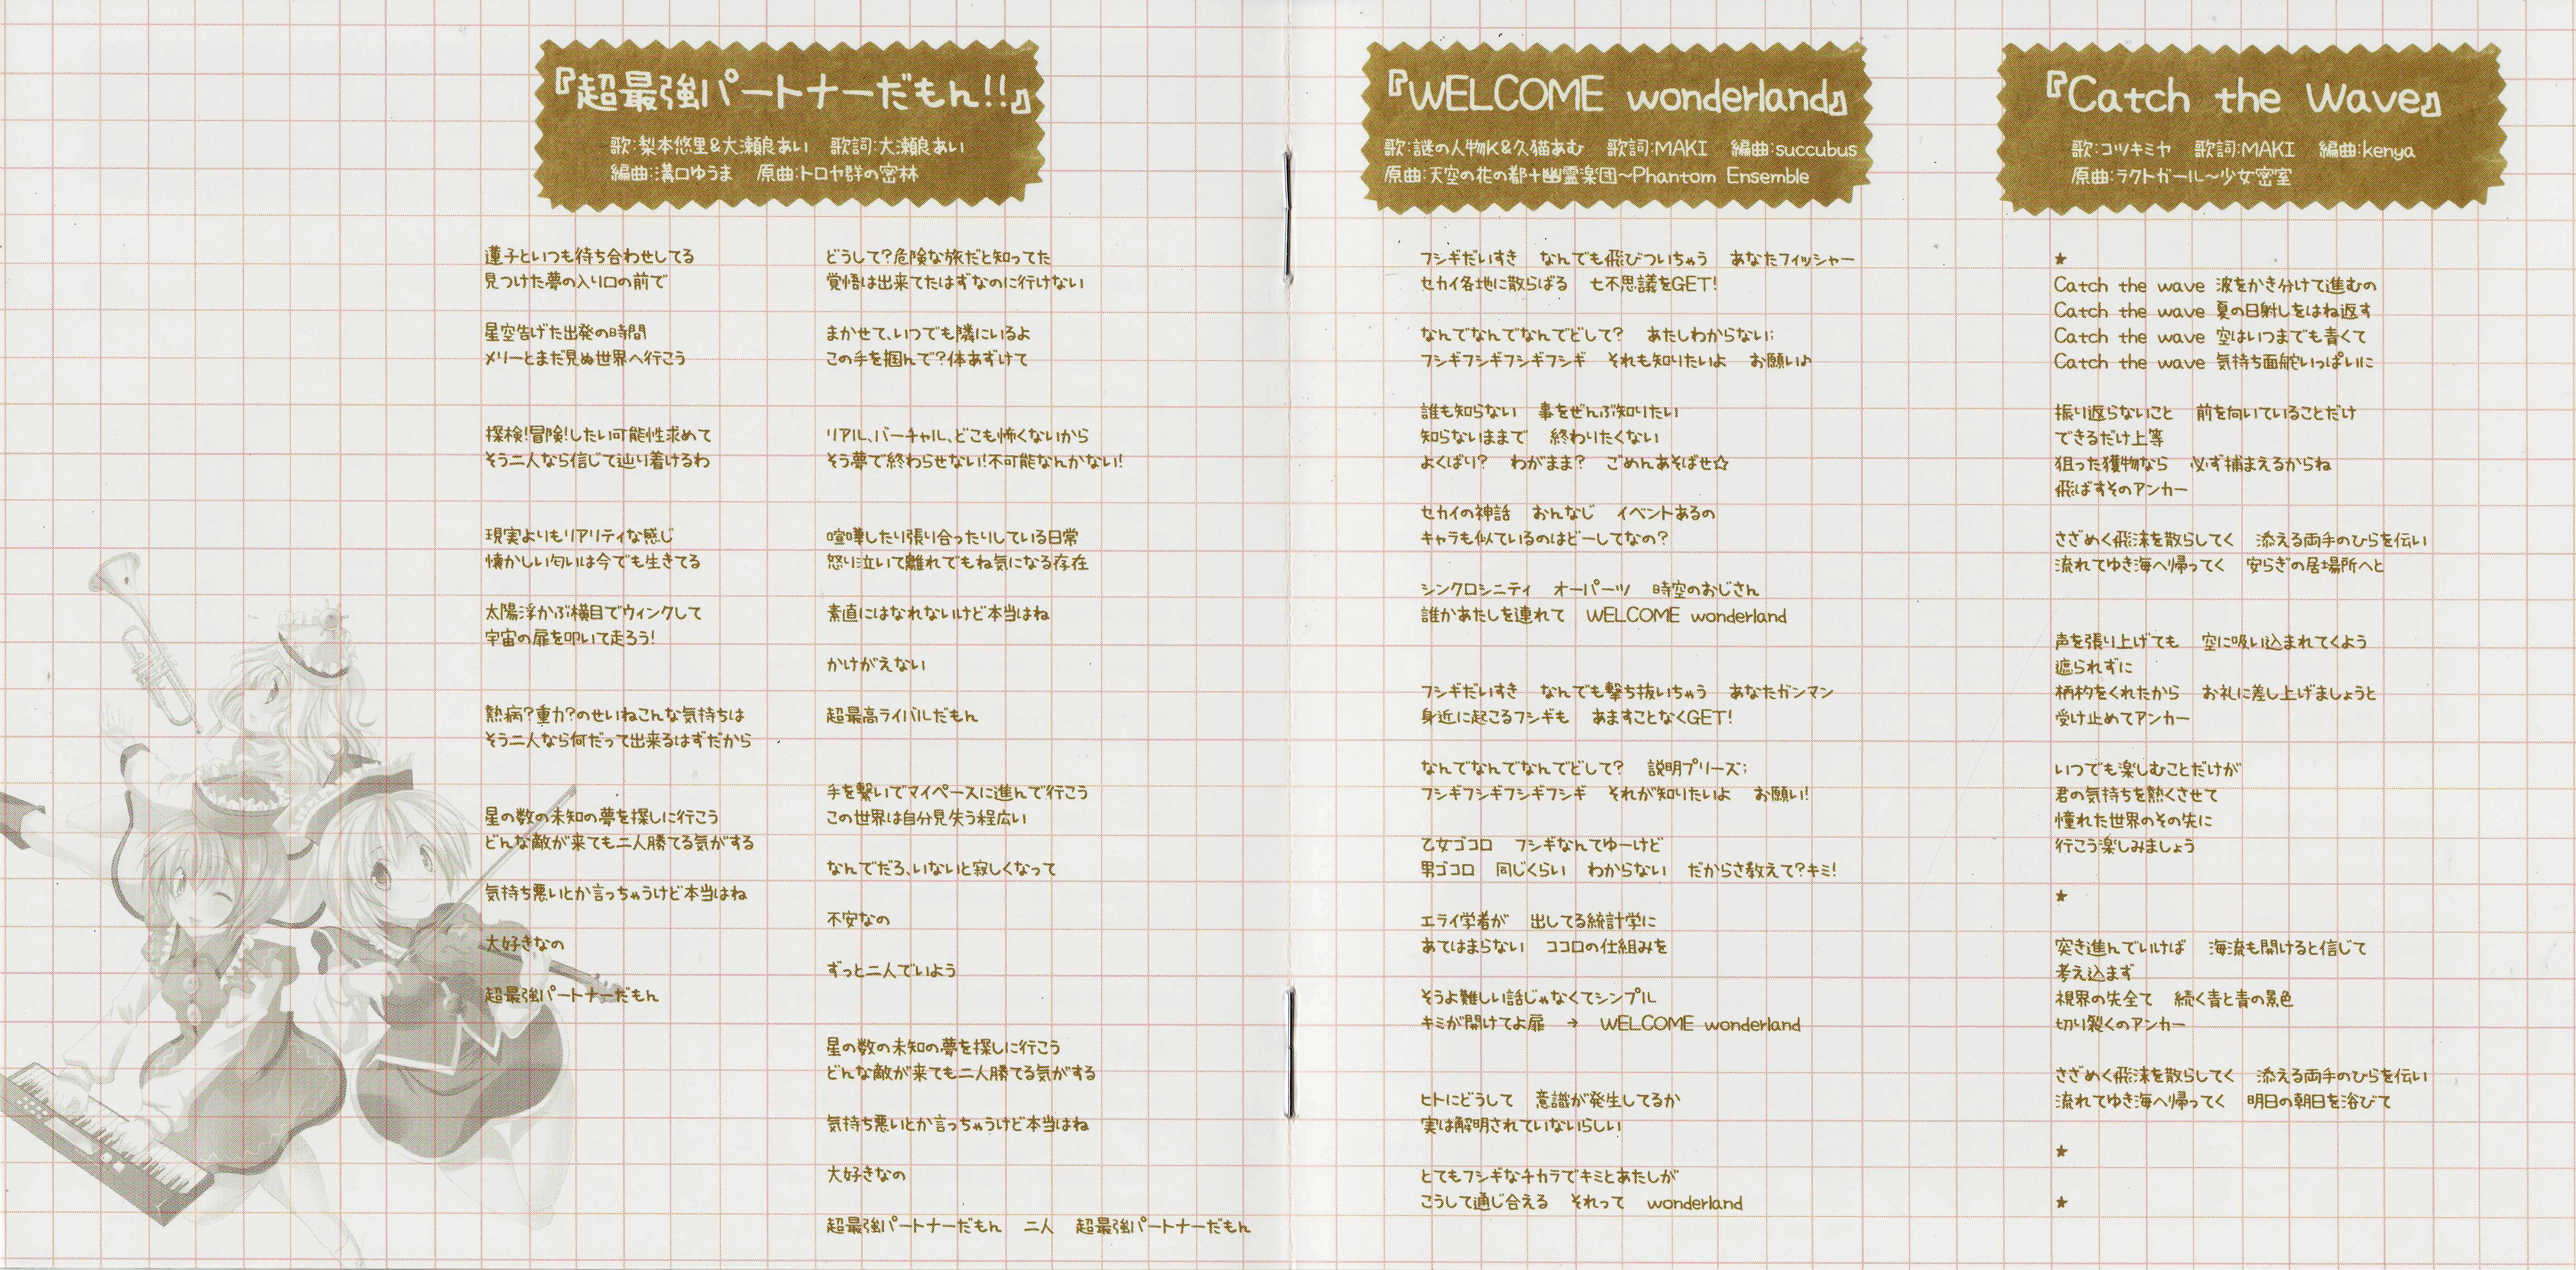 『超最強パートナーだもん!!』
歌:梨本悠里&大瀬良あい　歌詞:大瀬良あい
編曲:溝口ゆうま　原曲:トロヤ群の密林
蓮子といつも待ち合わせしてる
見つけた夢の入り口の前で
星空告げた出発の時間
メリーとまだ見ぬ世界へ行こう
探検!冒険!したい可能性求めて
そう二人なら信じて辿り着けるわ
現実よりもリアリティな感じ
懐かしい匂いは今でも生きてる
太陽浮かぶ横目でウィンクして
宇宙の扉を叩いて走ろう!
熱病?重力?のせいねこんな気持ちは
そう二人なら何だって出来るはずだから
星の数の未知の夢を探しに行こう
どんな敵が来ても二人勝てる気がする
気持ち悪いとか言っちゃうけど本当はね
大好きなの
超最強パートナーだもん
どうして?危険な旅だと知ってた
覚悟は出来てたはずなのに行けない
まかせて、いつでも隣にいるよ
この手を掴んで?体あずけて
リアル、バーチャル、どこも怖くないから
そう夢で終わらせない!不可能なんかない!
喧嘩したり張り合ったりしている日常
怒り泣いて離れてもね気になる存在
素直にはなれないけど本当はね
かけがえない
超最高ライバルだもん
手を繋いでマイペースに進んで行こう
この世界は自分見失う程広い
なんでだろ、いないと寂しくなって
不安なの
ずっと二人でいよう
星の数の未知の夢を探しに行こう
どんな敵が来ても二人勝てる気がする
気持ち悪いとか言っちゃうけど本当はね
大好きなの
超最強パートナーだもん　二人　超最強パートナーだもん
『WELCOME wonderland』
歌:謎の人物K&久猫あむ　歌詞:MAKI　編曲:succubus
原曲:天空の花の都+幽霊楽団～Phantom Ensemble
フシギだいすき　なんでも飛びついちゃう　あなたフィッシャー
セカイ各地に散らばる　七不思議をGET!
なんでなんでなんでどして?　あたしわからない;
フシギフシギフシギフシギ　それも知りたいよ　お願い♪
誰も知らない　事をぜんぶ知りたい
知らないままで　終わりたくない
よくばり?　わがまま?　ごめんあそばせ☆
セカイの神話　おんなじ　イベントあるの
キャラも似ているのはどーしてなの?
シンクロシニティ　オーパーツ　時空のおじさん
誰かあたしを連れて　WELCOME wonderland
フシギだいすき　なんでも撃ち抜いちゃう　あなたガンマン
身近に起こるフシギも　あますことなくGET!
なんでなんでなんでどして?　説明プリーズ;
フシギフシギフシギフシギ　それが知りたいよ　お願い!
乙女ゴコロ　フシギなんてゆーけど
男ゴコロ　同じくらい　わからない　だからさ教えて?キミ!
エライ学者が　出してる統計学に
あてはまらない　ココロの仕組みを
そうよ難しい話じゃなくてシンプル
キミが開けてよ扉　→　WELCOME wonderland
ヒトにどうして　意識が発生してるか
実は解明されていないらしい
とてもフシギなチカラでキミとあたしが
こうして通じ合える　それって　wonderland
『Catch the Wave』
歌:コツキミヤ　歌詞:MAKI　編曲:kenya
原曲:ラクトガール～少女密室
★
Catch the wave 波をかき分けて進むの
Catch the wave 夏の日射しをはね返す
Catch the wave 空はいつまでも青くて
Catch the wave 気持ち面舵いっぱいに
振り返らないこと　前を向いていることだけ
できるだけ上等
狙った獲物なら　必ず捕まえるからね
飛ばすそのアンカー
さざめく飛沫を散らしてく　添える両手のひらを伝い
流れてゆき海へ帰ってく　安らぎの居場所へと
声を張り上げても　空に吸い込まれてくよう
遮られずに
柄杓をくれたから　お礼に差し上げましょうと
受け止めてアンカー
いつでも楽しむことだけが
君の気持ちを熱くさせて
憧れた世界のその先に
行こう楽しみましょう
★
突き進んでいけば　海流も開けると信じて
考え込まず
視界の先全て　続く青と青の景色
切り裂くのアンカー
さざめく飛沫を散らしてく　添える両手のひらを伝い
流れてゆき海へ帰ってく　明日の朝日を浴びて
★
★